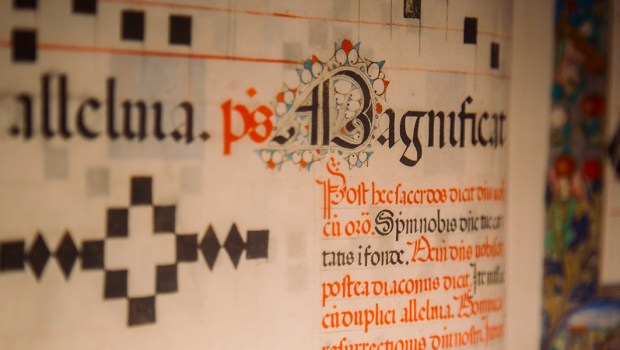 alleluia. ps Magnificat
Post hec sacerdos dicit dns vob
cū orō. Spm nobis dne tue ca
tatis ifonde. Dein dns vobisc
postea diaconus dicit. Ite missa
cū duplici alleluia. Dominica
resurrectionis dni nostri